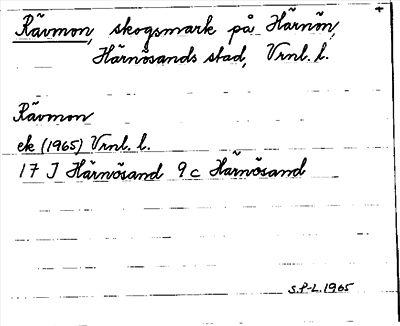 Rävmon, skogsmark på Härnön,
Härnösands stad, Vrnl. l.
Rävmon
ek (1965) Vrnl. l.
17 J Härnösand 9 c Härnösand
S.P-L. 1965